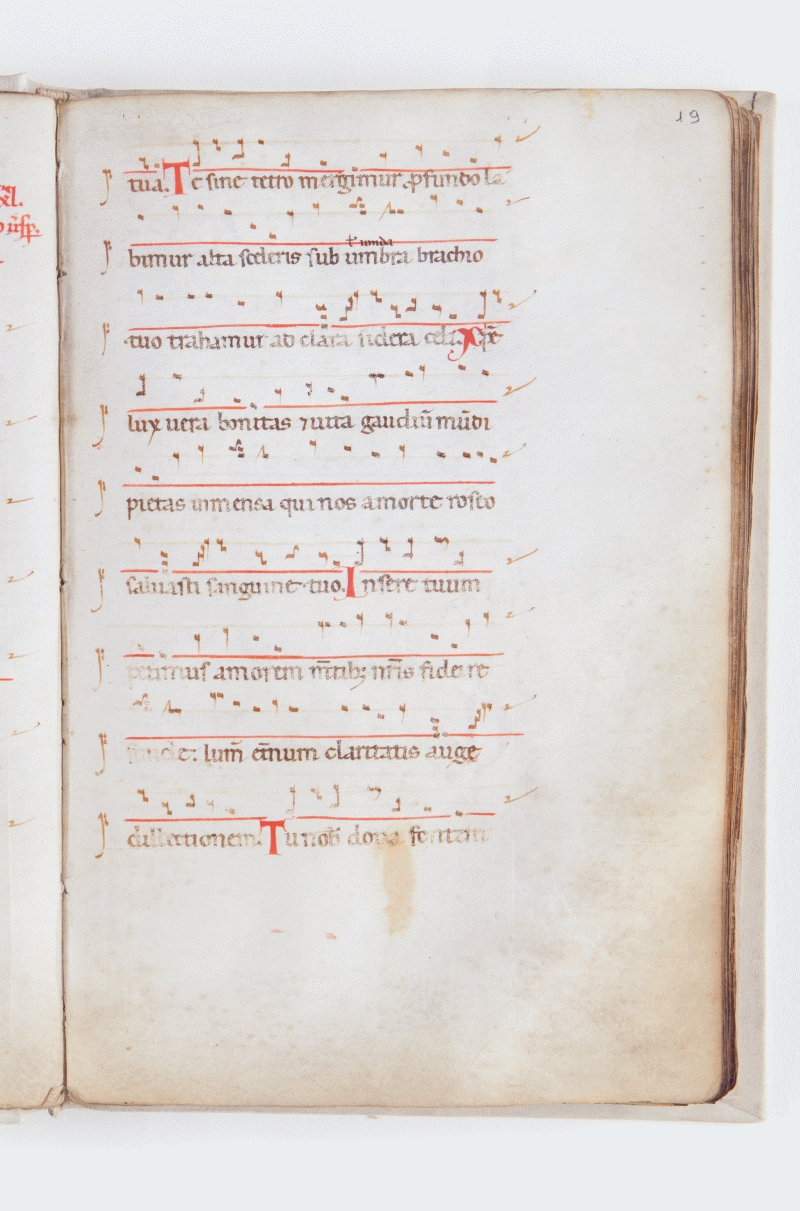 19
tua. Te sine tetro mergimur ꝓfundo la
ł unda
bimur alta sceleris sub umbra brachio
tuo trahamur ad clara sidera celi. Xp̄e
lux uera bonitas ⁊ uita gaudiū mūdi
pietas inmensa qui nos amorte roseo
saluasti sanguine tuo. Insere tuum
petimus amorem m̄tibꝫ nr̄is fidei re
funde: lum̄ et̄num claritatis auge
dillectionem. Tu nob̄ dona fontem